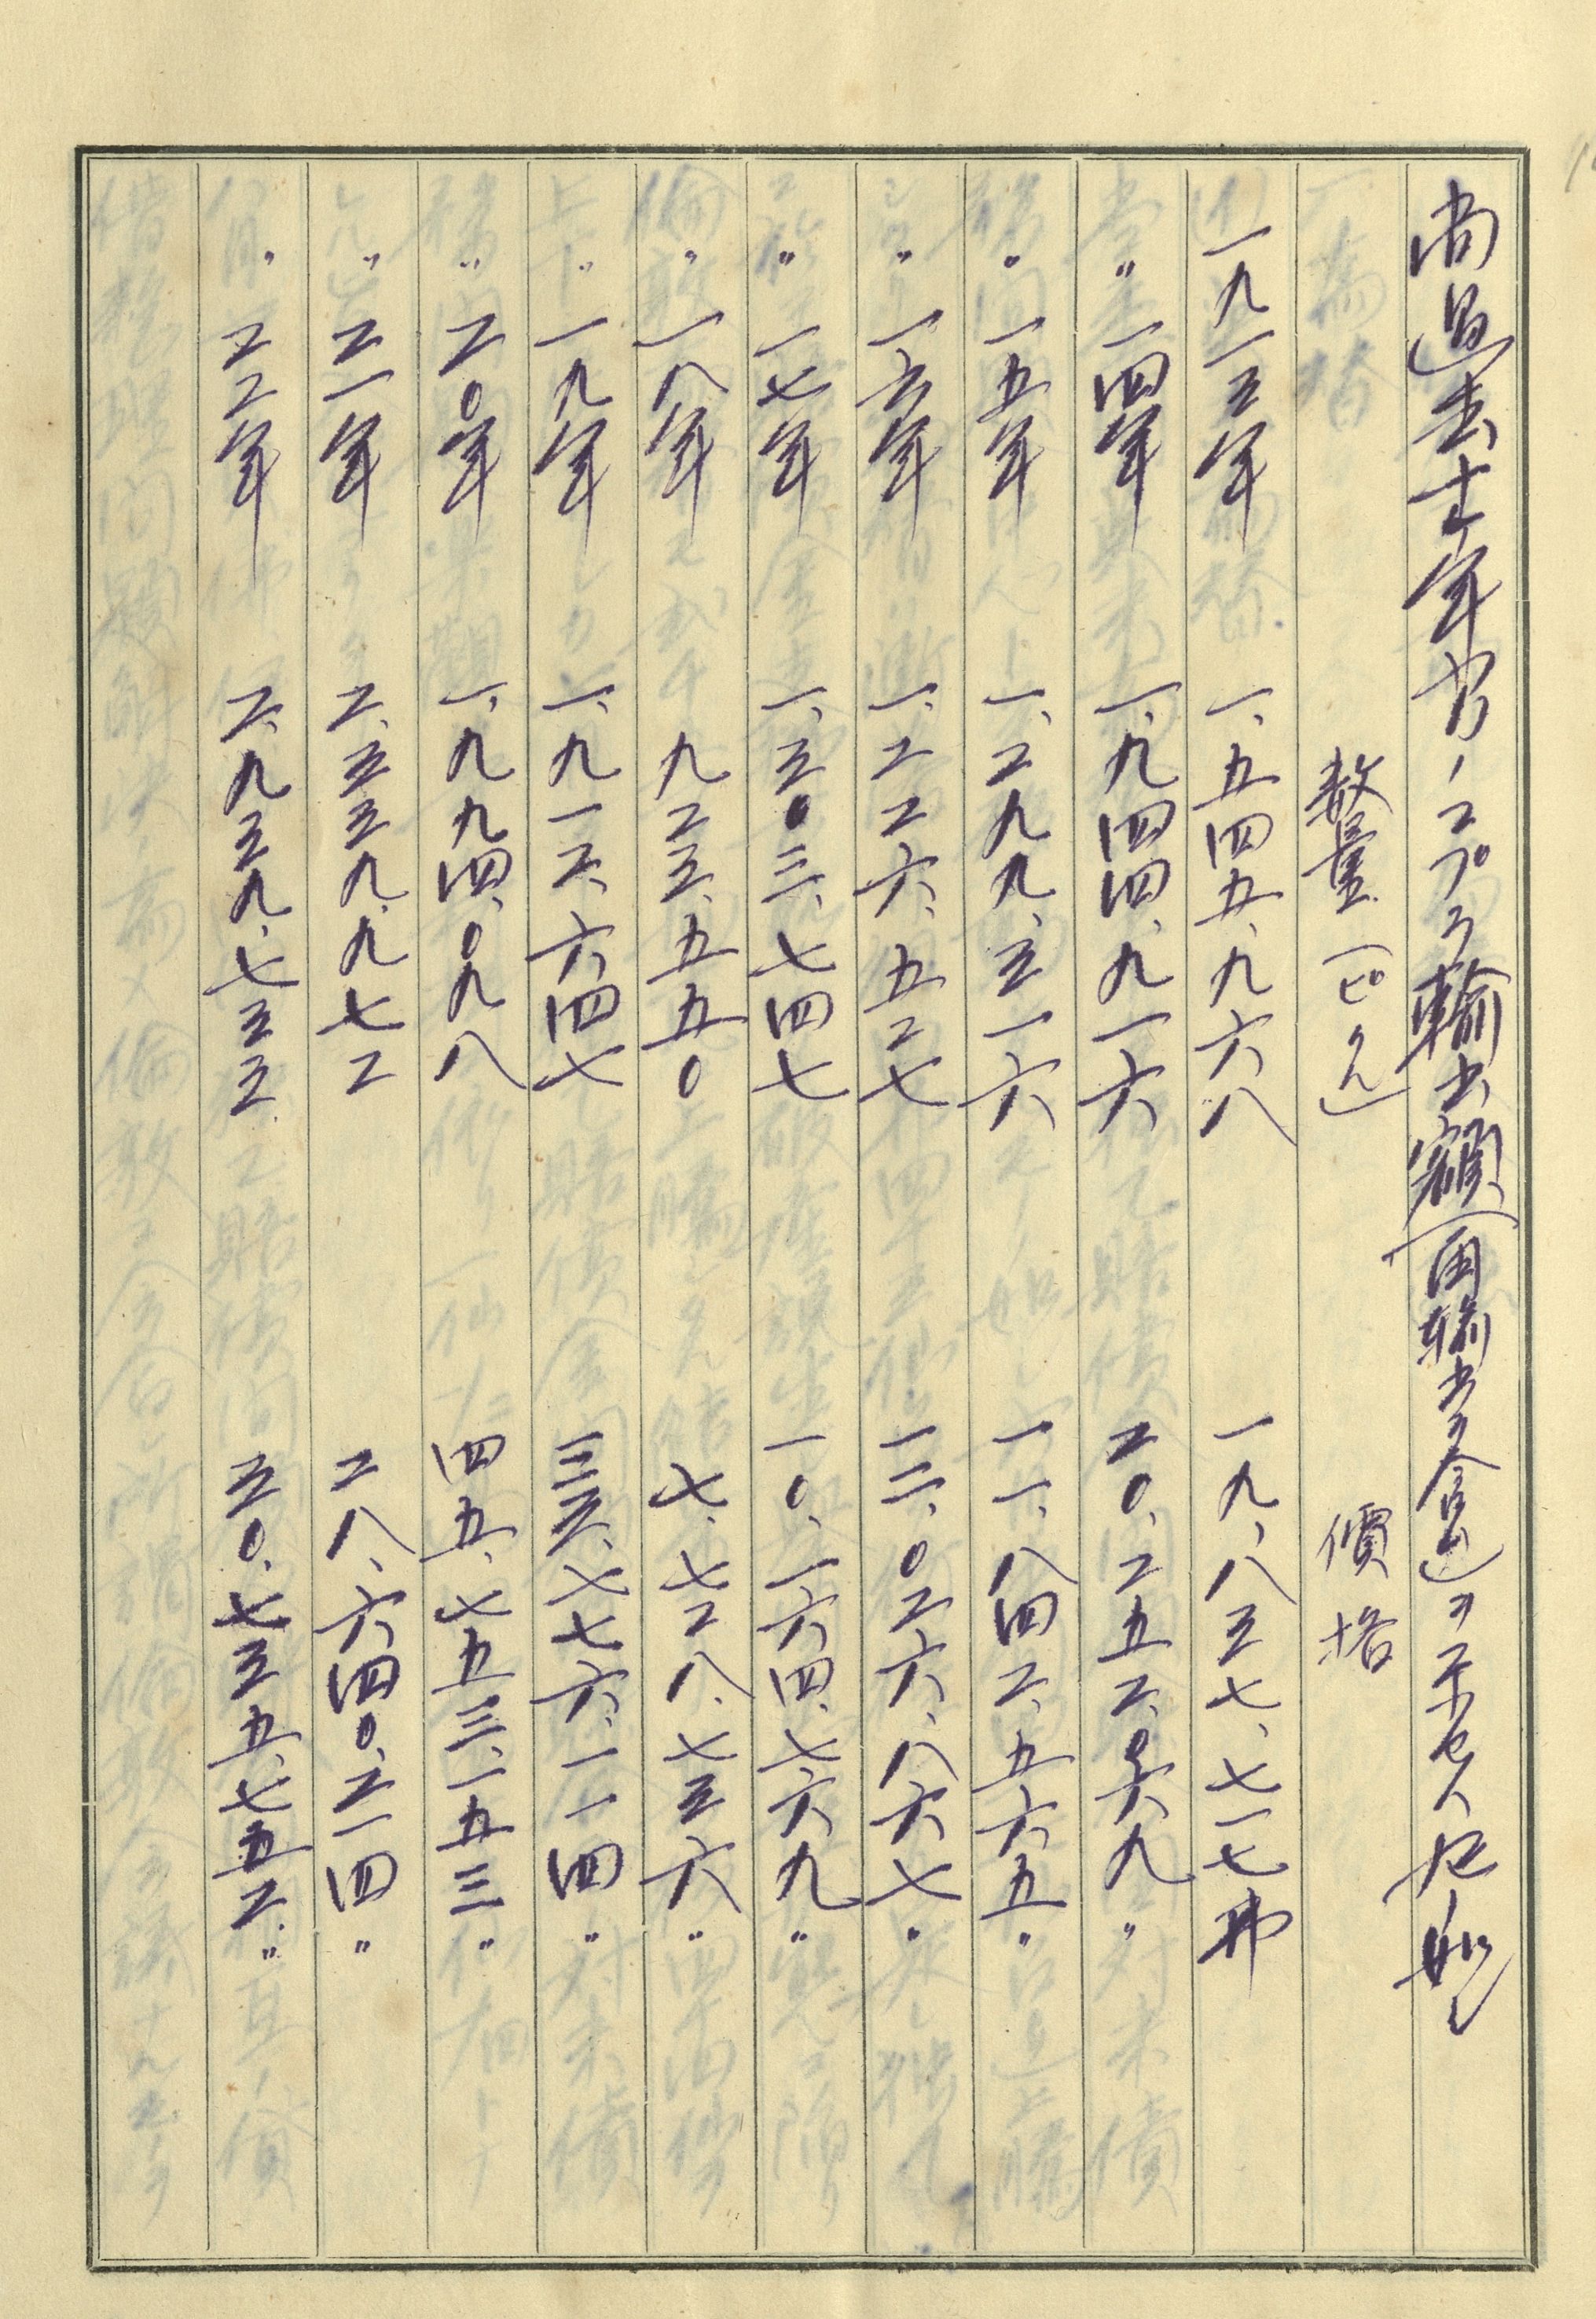 尚過去十年間ノコプラ輸出額(再輸出ヲ含ム)ヲ示セハ左ノ如シ
数量(ピクル) 價格
一九一三年 一、五四五、九六八 一九、八三七、七一七弗
〃一四年 一、九四四、九一六 二〇、二五二、〇六九〃
〃一五年 一、二九九、三一六 一一、八四二、五六五〃
〃一六年 一、二二六、五二七 一二、〇二六、八六七〃
〃一七年 一、三〇三、七四七 一〇、一六四、七六九〃
〃一八年 九二三、五五〇 七、七二八、七三六〃
〃一九年 一、九一二、六四七 三三、七七六、一一四〃
〃二〇年 一、九九四、〇九八 四五、七五三、一五三〃
〃二一年 二、三三九、九七二 二八、六四〇、二一四〃
〃二二年 二、九三九、七三三 三〇、七三五、七五二〃